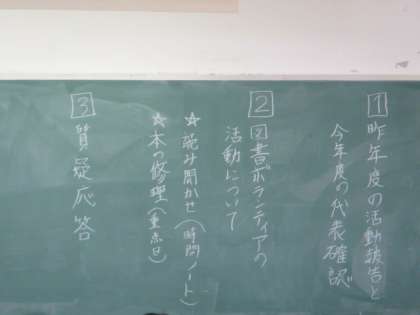 1 昨年度の活動報告と
今年度の代表確認
2 図書ボランティアの
活動について
☆読み聞かせ(時間ノート)
☆本の修理(
3 質疑応答